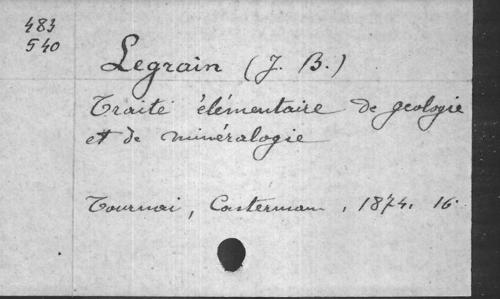 483
540
Legrain (J. B.)
Traité élémentaire de geologie
et de minéralogie
Tournai, Casterman, 1874. 16.